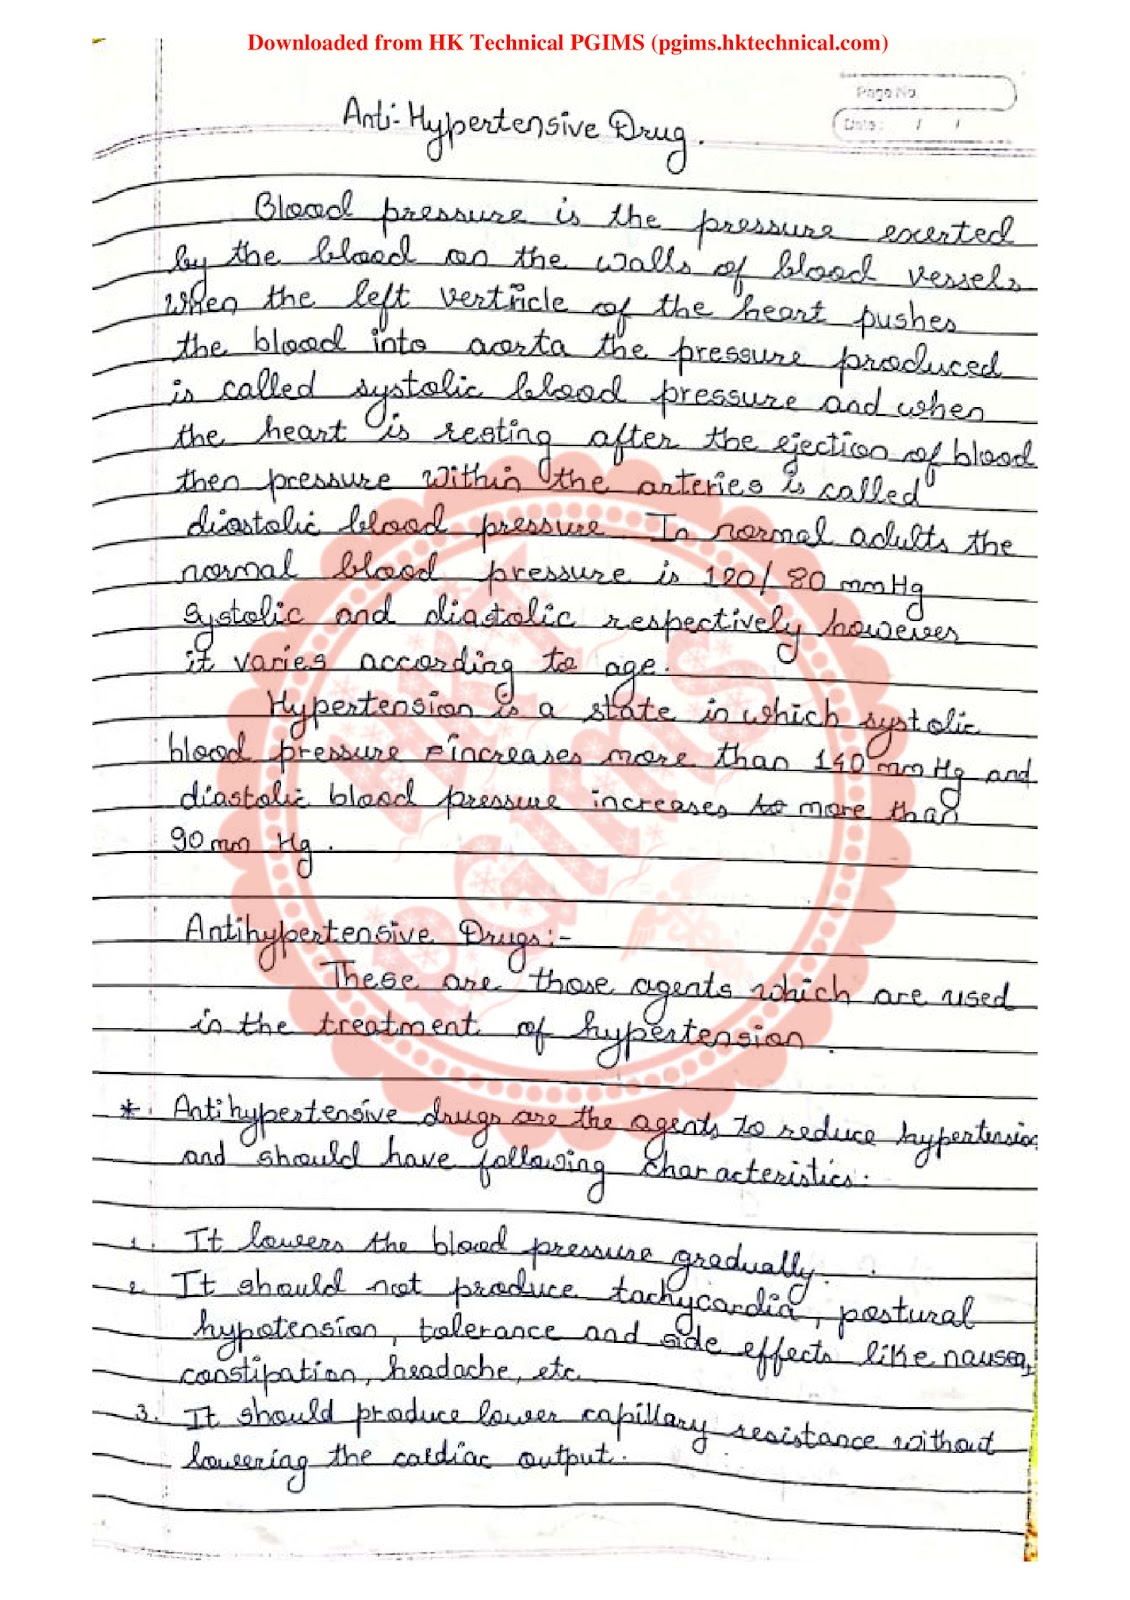 Downloaded from HK Technical PGIMS (pgims.hktechnical.com)
Page No.
Date: / /
Anti-Hypertensive Drug.
Blood pressure is the pressure exerted
by the blood on the walls of blood vessels
when the left ventricle of the heart pushes
the blood into aorta the pressure produced
is called systolic blood pressure and when
the heart is resting after the ejection of blood
then pressure within the arteries is called
diastolic blood pressure. In normal adults the
normal blood pressure is 120/80 mmHg
systolic and diastolic respectively however
it varies according to age.
Hypertension is a state in which systolic
blood pressure increases more than 140 mm Hg and
diastolic blood pressure increases to more than
90 mm Hg.
Antihypertensive Drugs:-
These are those agents which are used
in the treatment of hypertension.
* Antihypertensive drugs are the agents to reduce hypertension
and should have following characteristics.
1. It lowers the blood pressure gradually.
2. It should not produce tachycardia, postural
hypotension, tolerance and side effects like nausea,
constipation, headache, etc.
3. It should produce lower capillary resistance without
lowering the cardiac output.
HK
PGIMS